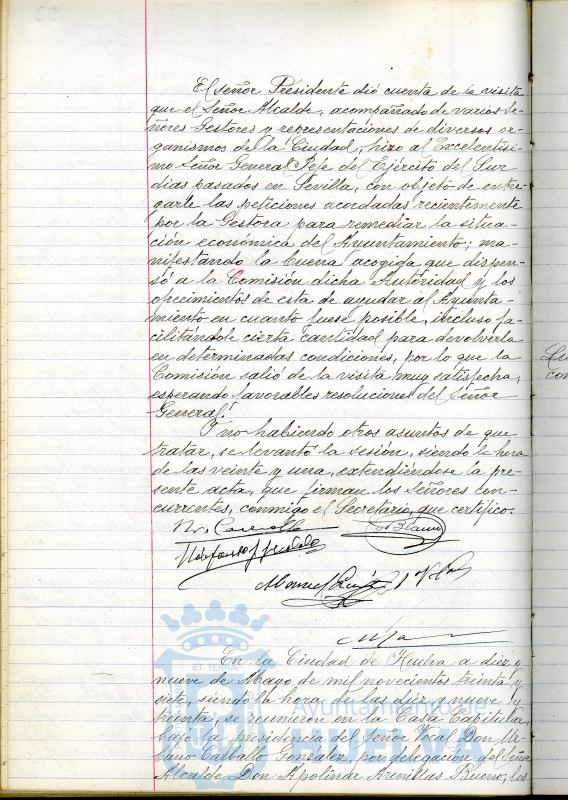 El señor Presidente dió cuenta de la visita
que el Señor Alcalde, acompañado de varios Se-
ñores Gestores y representaciones de diversos or-
ganismos de la Ciudad, hizo al Excelentísi-
mo Señor General Jefe del Ejército del Sur
dias pasados en Sevilla, con objeto de entre-
garle las peticiones acordadas recientemente
por la Gestora para remediar la situa-
ción económica del Ayuntamiento; ma-
nifestando la buena acogida que dispen-
só a la Comisión dicha Autoridad y los
ofrecimientos de esta de ayudar al Ayunta-
miento en cuanto fuese posible, incluso fa-
cilitándole cierta cantidad para devolverla
en determinadas condiciones, por lo que la
Comisión salió de la visita muy satisfecha,
esperando favorables resoluciones del Señor
General.
Y no habiendo otros asuntos de que
tratar, se levantó la sesión, siendo la hora
de las veinte y una, extendiéndose la pre-
sente acta, que firman los señores con-
currentes, conmigo el Secretario, que certifico.
Manuel
ET TERRA
En la Ciudad de Huelva a diez y
nueve de Mayo de mil novecientos treinta y
siete, siendo la hora de las diez y nueve y
treinta, se reunieron en la Casa Capitular,
bajo la presidencia del Señor Vocal Don Ur-
bano Carballo González, por delegación del Señor
Alcalde Don Apolinar Arenillas Bueno, los
Ayuntamiento de
HUELVA